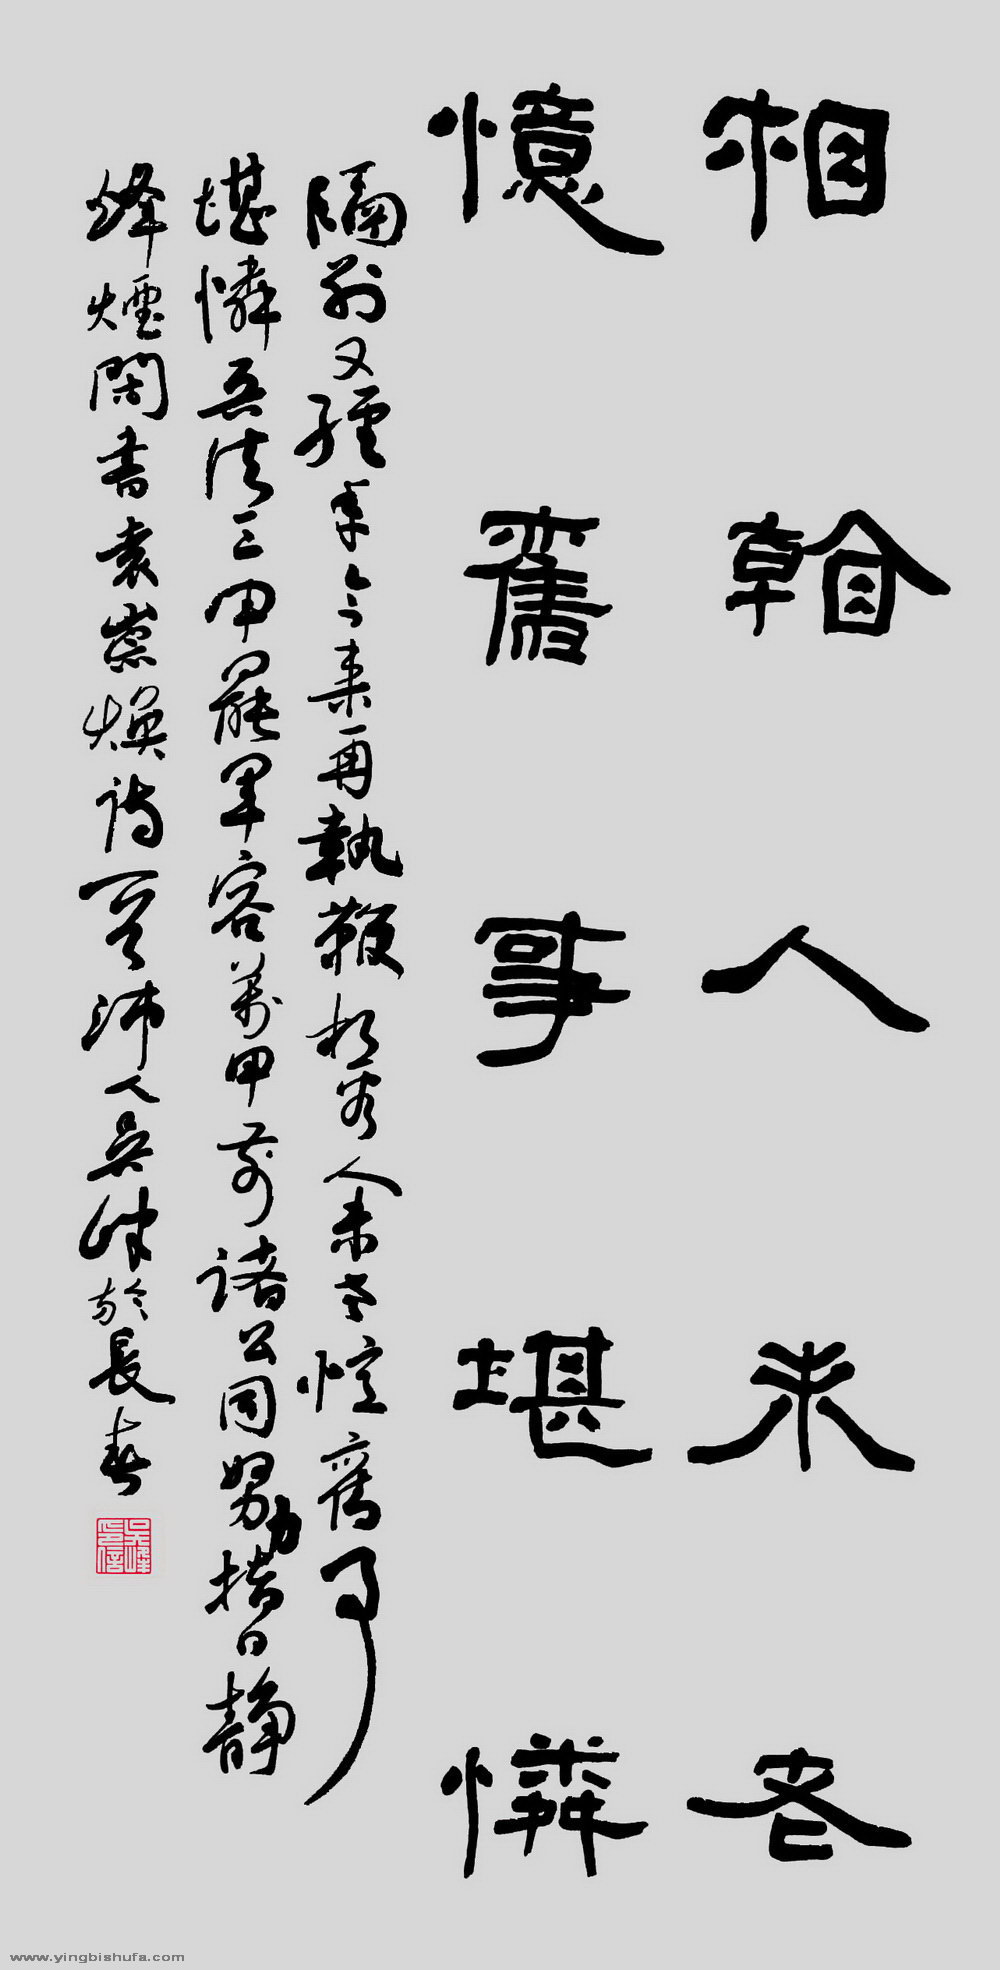 相看人未老
憶舊事堪憐
隔別又經年今來再執鞭相看人未老憶舊事
堪憐吾法三申罷軍容萬甲前諸公同努力指日靜
烽煙閑書袁崇煥詩一首沛人吳峰於長春
吳峰印信
www.yingbishufa.com